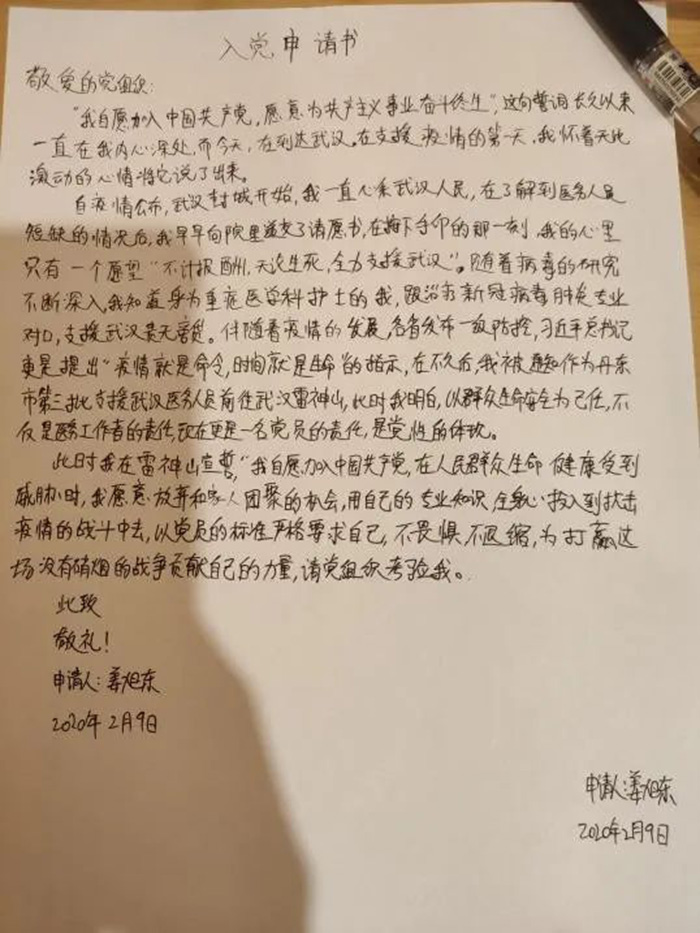 入党申请书
敬爱的党组织:
“我自愿加入中国共产党,愿意为共产主义事业奋斗终生”,这句誓词长久以来
一直在我内心深处,而今天,在到达武汉,在支援疫情的第一天,我怀着无比
激动的心情将它说了出来。
自疫情公布,武汉封城开始,我一直心系武汉人民,在了解到医务人员
短缺的情况后,我早早向院里递交了请愿书,在按下手印的那一刻,我的心里
只有一个愿望“不计报酬,无论生死,全力支援武汉”。随着病毒的研究
不断深入,我知道身为重症医学科护士的我,跟治疗新冠病毒肺炎专业
对口,支援武汉责无旁贷。伴随着疫情的发展,各省发布一级防控,习近平总书记
更是提出“疫情就是命令,时间就是生命”的指示,在不久后,我被通知作为丹东
市第三批支援武汉医务人员前往武汉雷神山,此时我明白,以群众生命安全为己任,不
仅是医务工作者的责任,现在更是一名党员的责任,是党性的体现。
此时我在雷神山宣誓,“我自愿加入中国共产党,在人民群众生命健康受到
威胁时,我愿意放弃和家人团聚的机会,用自己的专业知识,全身心投入到抗击
疫情的战斗中去,以党员的标准严格要求自己,不畏惧,不退缩,为打赢这
场没有硝烟的战争贡献自己的力量,请党组织考验我。
此致
敬礼!
申请人:姜旭东
2020年2月9日
申请人:姜旭东
2020年2月9日